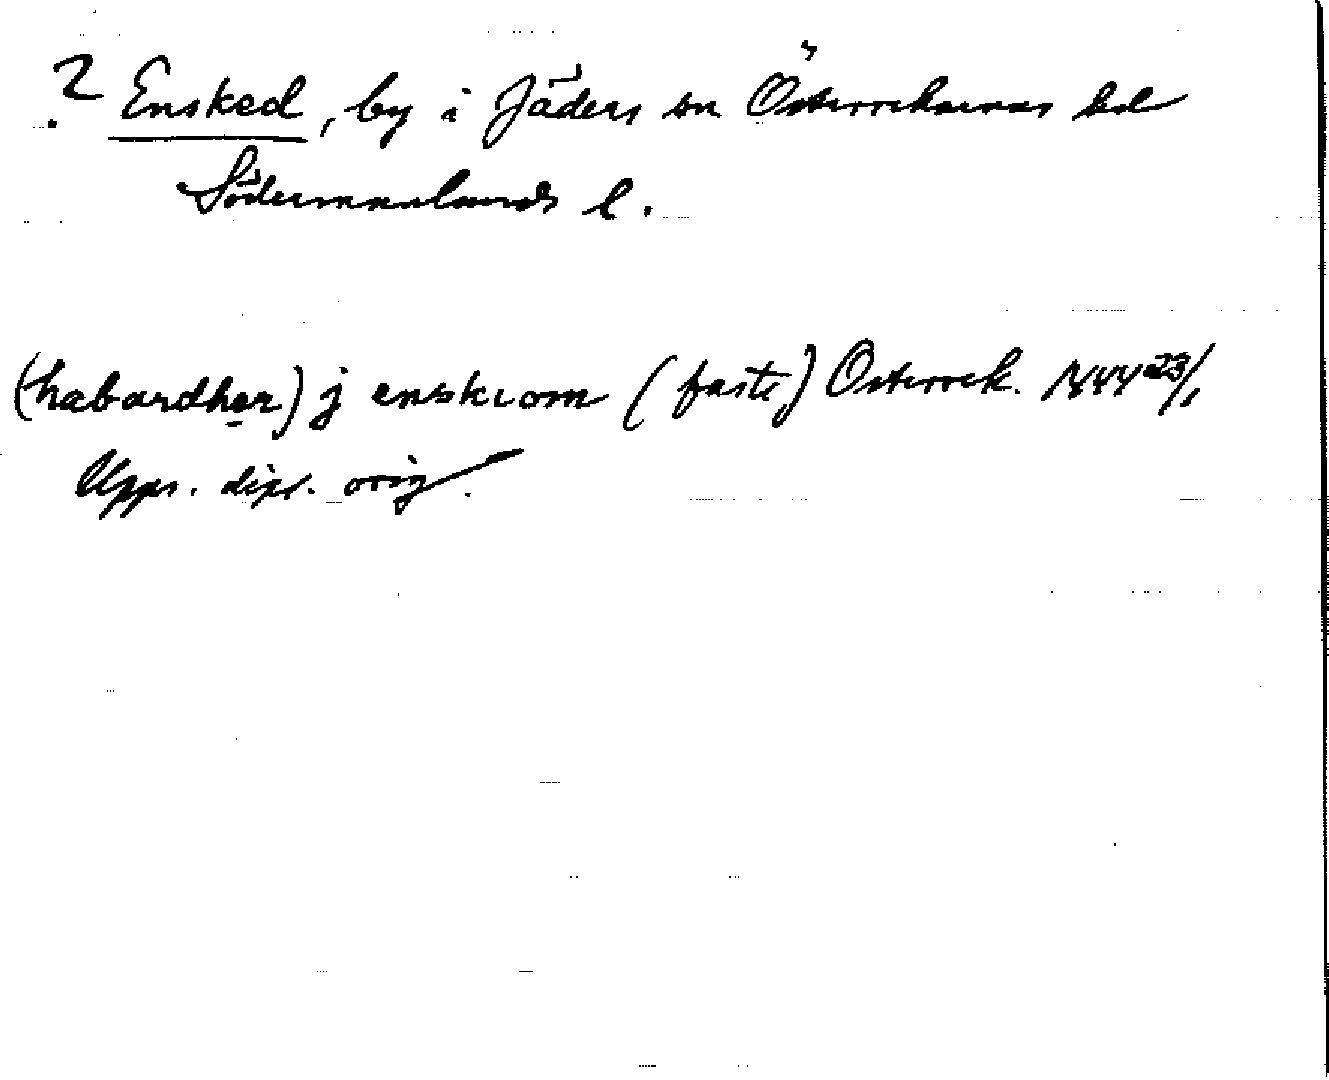 ? Ensked, by i Jäders sn Österrekarnes hd
Södermanlands l.
(habardher) j enskiom (faste) Österrek. 1444 23/1
Upps. dipl. orig.